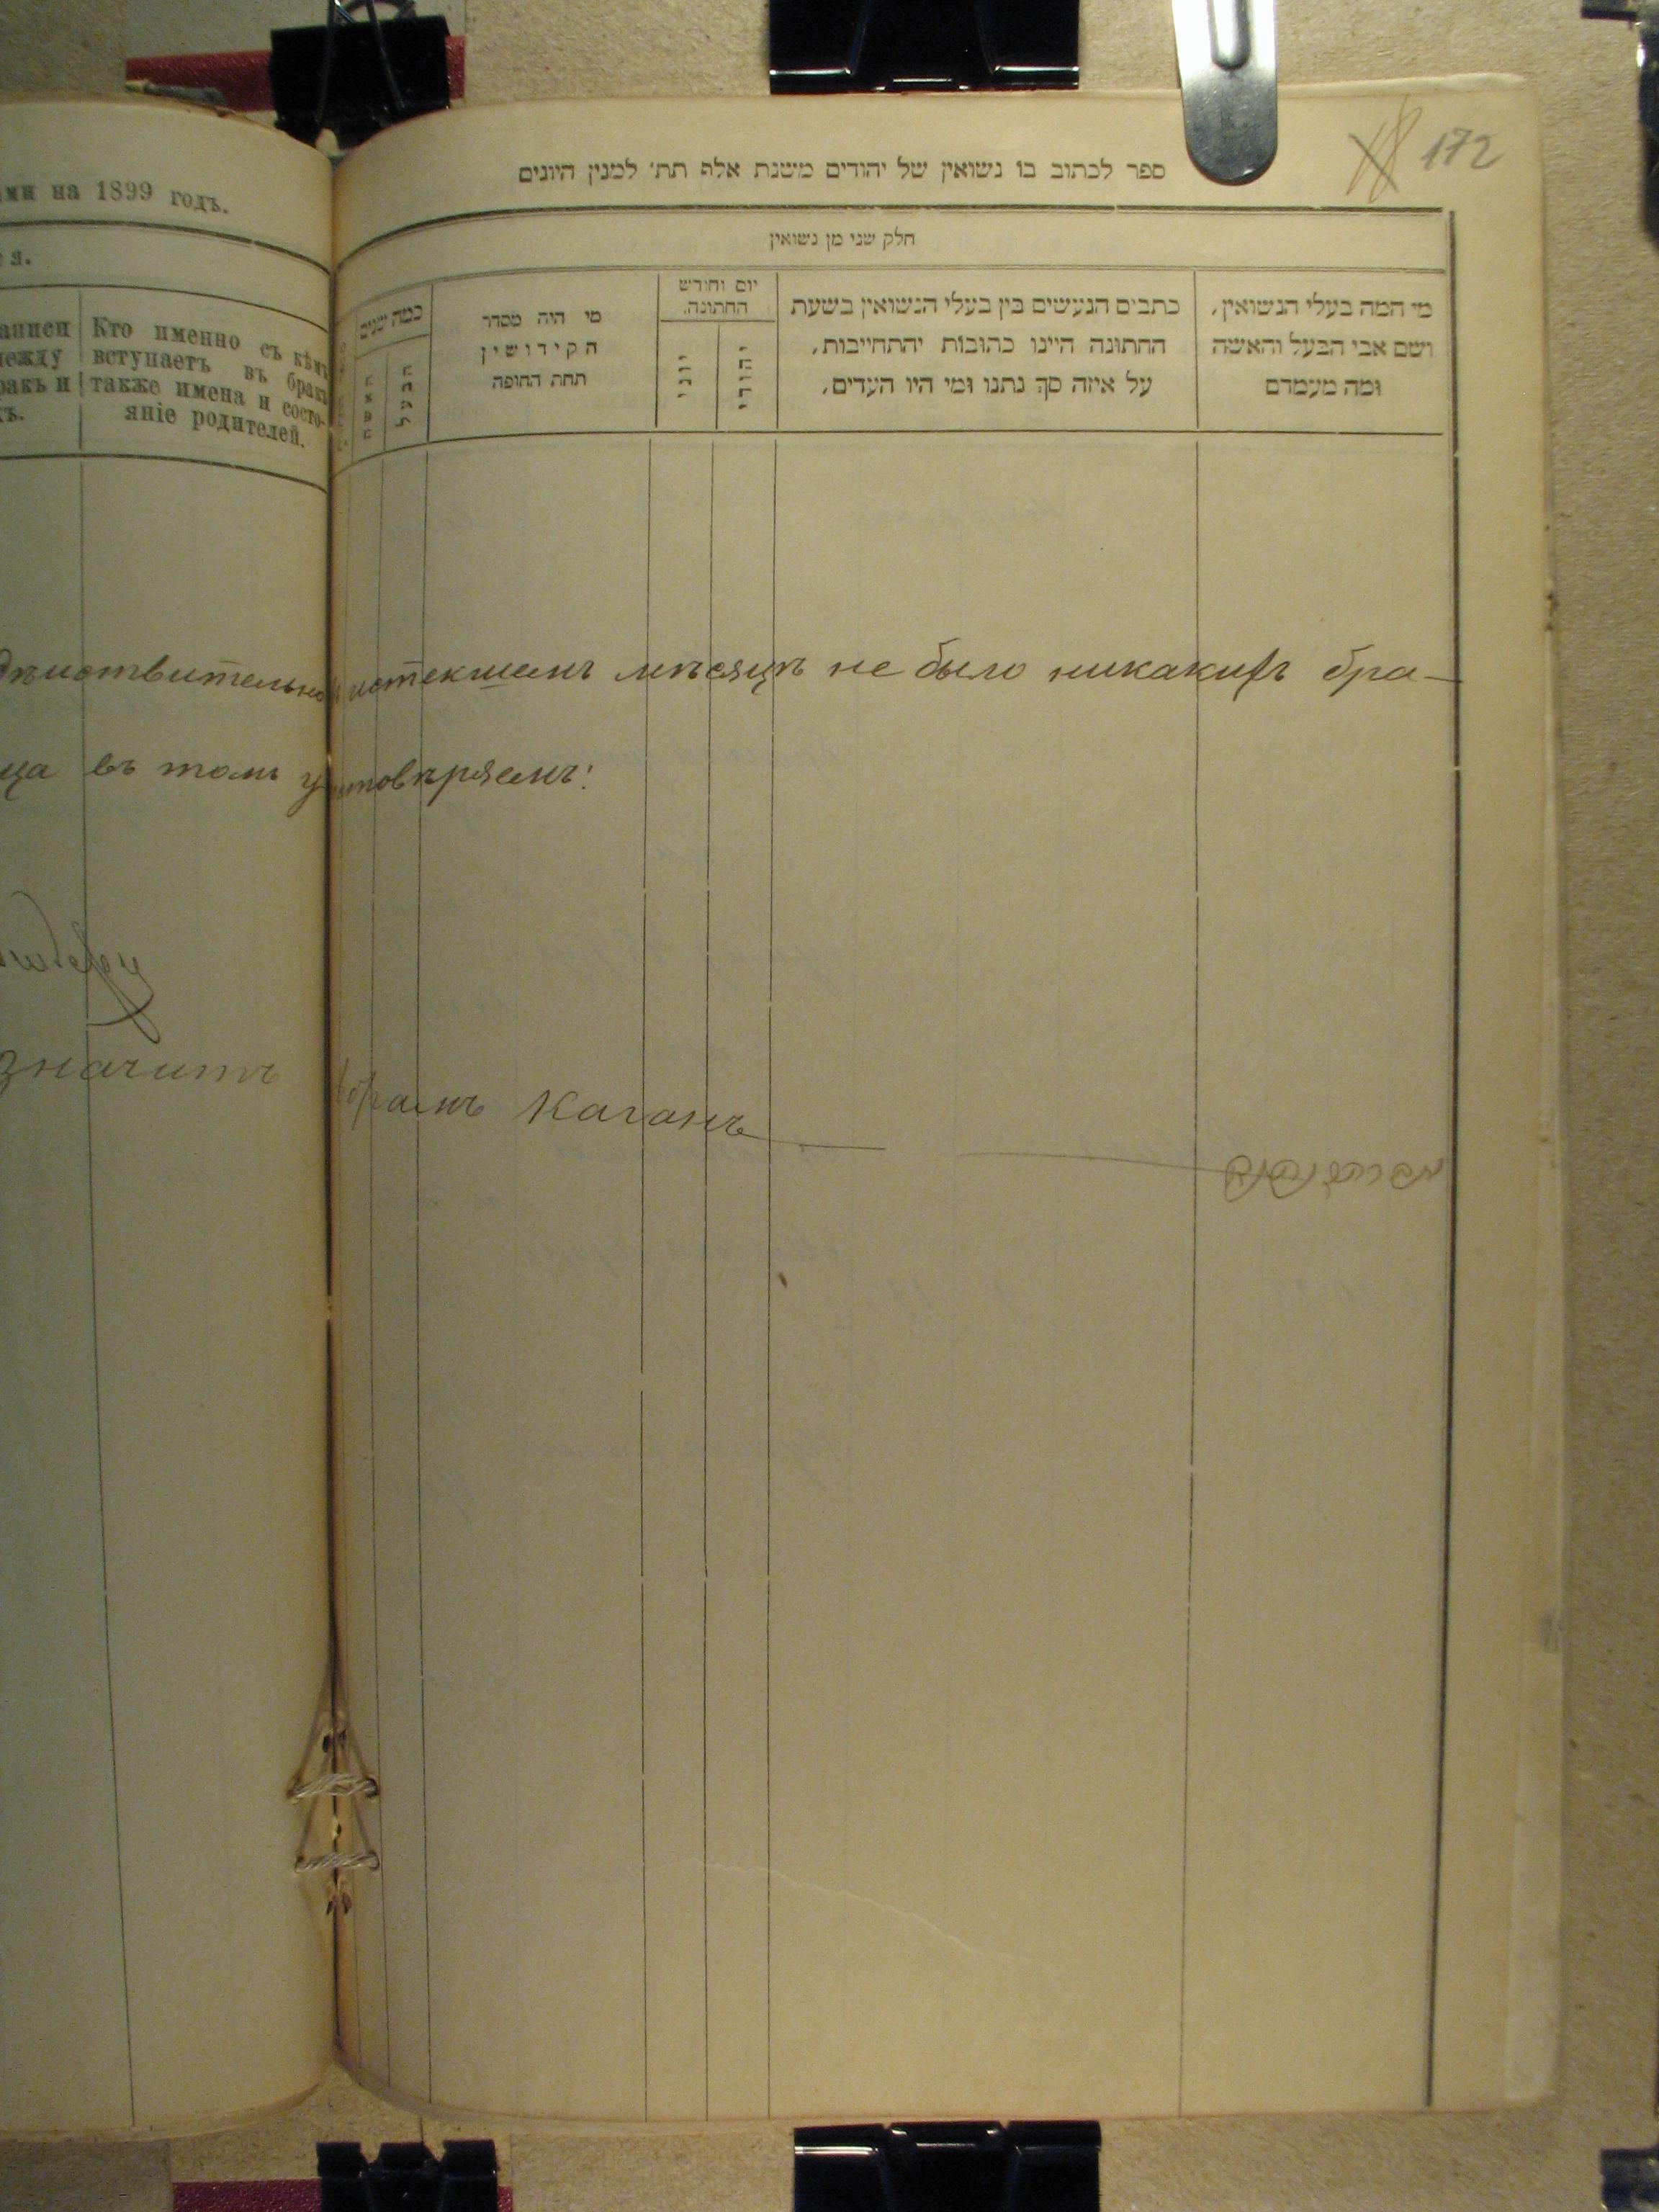 ми на 1899 годъ.
я.
записи
между
бракъ и
хъ.
Кто именно съ кѣмъ
вступаетъ въ бракъ
также имена и состо-
яніе родителей.
172
ספר לכתוב בו נשואין של יהודים משנת אלף תת׳ למנין היונים
חלק שני מן נשואין
מי המה בעלי הנשואין,
ושם אבי הבעל והאשה
ומה מעמדם
כתבים הנעשים בין בעלי הנשואין בשעת
החתונה היינו כתובות והתחייבות,
על איזה סך נתנו ומי היו העדים.
יום וחודש
החתונה.
יהודי
יוני
מי היה מסדר
הקידושין
תחת החופה
כמה שנים
הבעל
האשה
дѣйствительно истекшемъ мѣсяцѣ не было никакихъ бра-
ца въ томъ удостовѣряемъ:
значитъ Абрамъ Каганъ